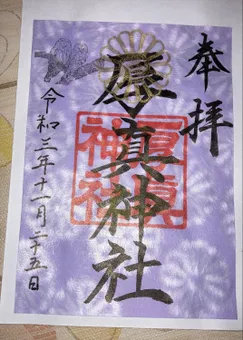 奉拝
厚真神社
厚眞
神社
令和三年十一月二十五日